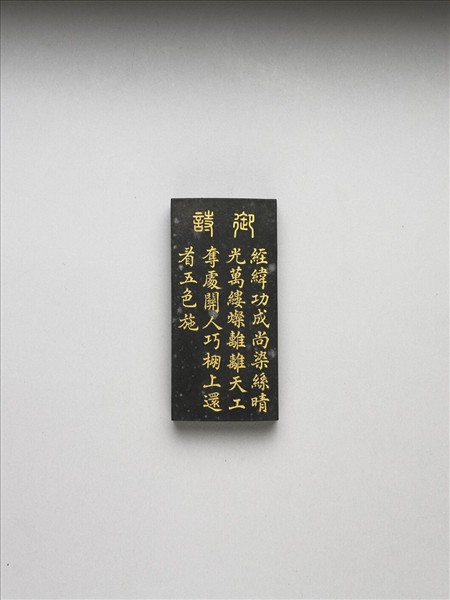 御詩
經緯功成尚染絲晴
光萬縷燦離離天工
奪處關人巧棚上還
看五色施